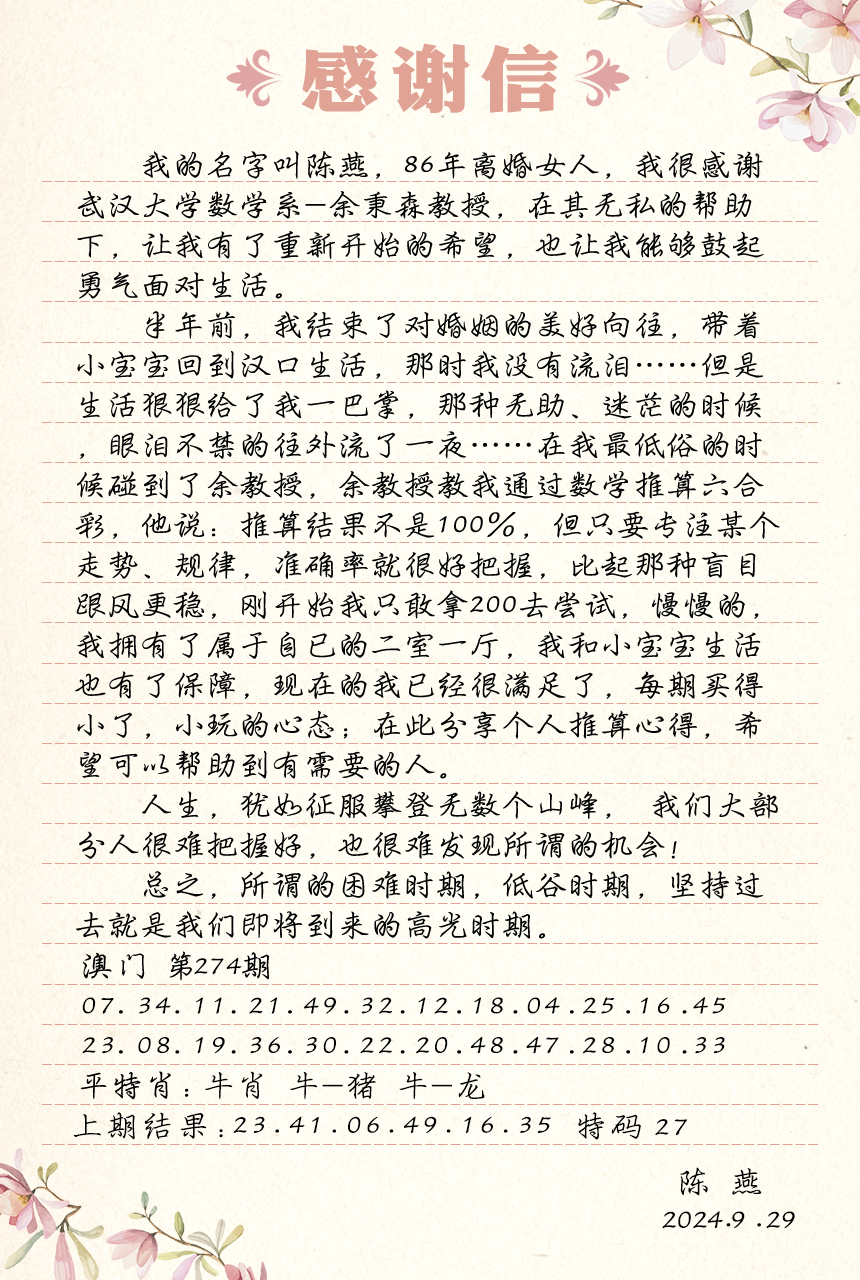 感谢信
我的名字叫陈燕，86年离婚女人，我很感谢
武汉大学数学系—余秉森教授，在其无私的帮助
下，让我有了重新开始的希望，也让我能够鼓起
勇气面对生活。
半年前，我结束了对婚姻的美好向往，带着
小宝宝回到汉口生活，那时我没有流泪……但是
生活狠狠给了我一巴掌，那种无助、迷茫的时候
，眼泪不禁的往外流了一夜……在我最低俗的时
候碰到了余教授，余教授教我通过数学推算六合
彩，他说：推算结果不是100%，但只要专注某个
走势、规律，准确率就很好把握，比起那种盲目
跟风更稳，刚开始我只敢拿200去尝试，慢慢的，
我拥有了属于自已的二室一厅，我和小宝宝生活
也有了保障，现在的我已经很满足了，每期买得
小了，小玩的心态；在此分享个人推算心得，希
望可以帮助到有需要的人。
人生，犹如征服攀登无数个山峰， 我们大部
分人很难把握好，也很难发现所谓的机会！
总之，所谓的困难时期，低谷时期，坚持过
去就是我们即将到来的高光时期。
澳门 第274期
07.34.11.21.49.32.12.18.04.25.16.45
23.08.19.36.30.22.20.48.47.28.10.33
平特肖：牛肖 牛—猪 牛—龙
上期结果：23.41.06.49.16.35 特码 27
陈 燕
2024.9.29